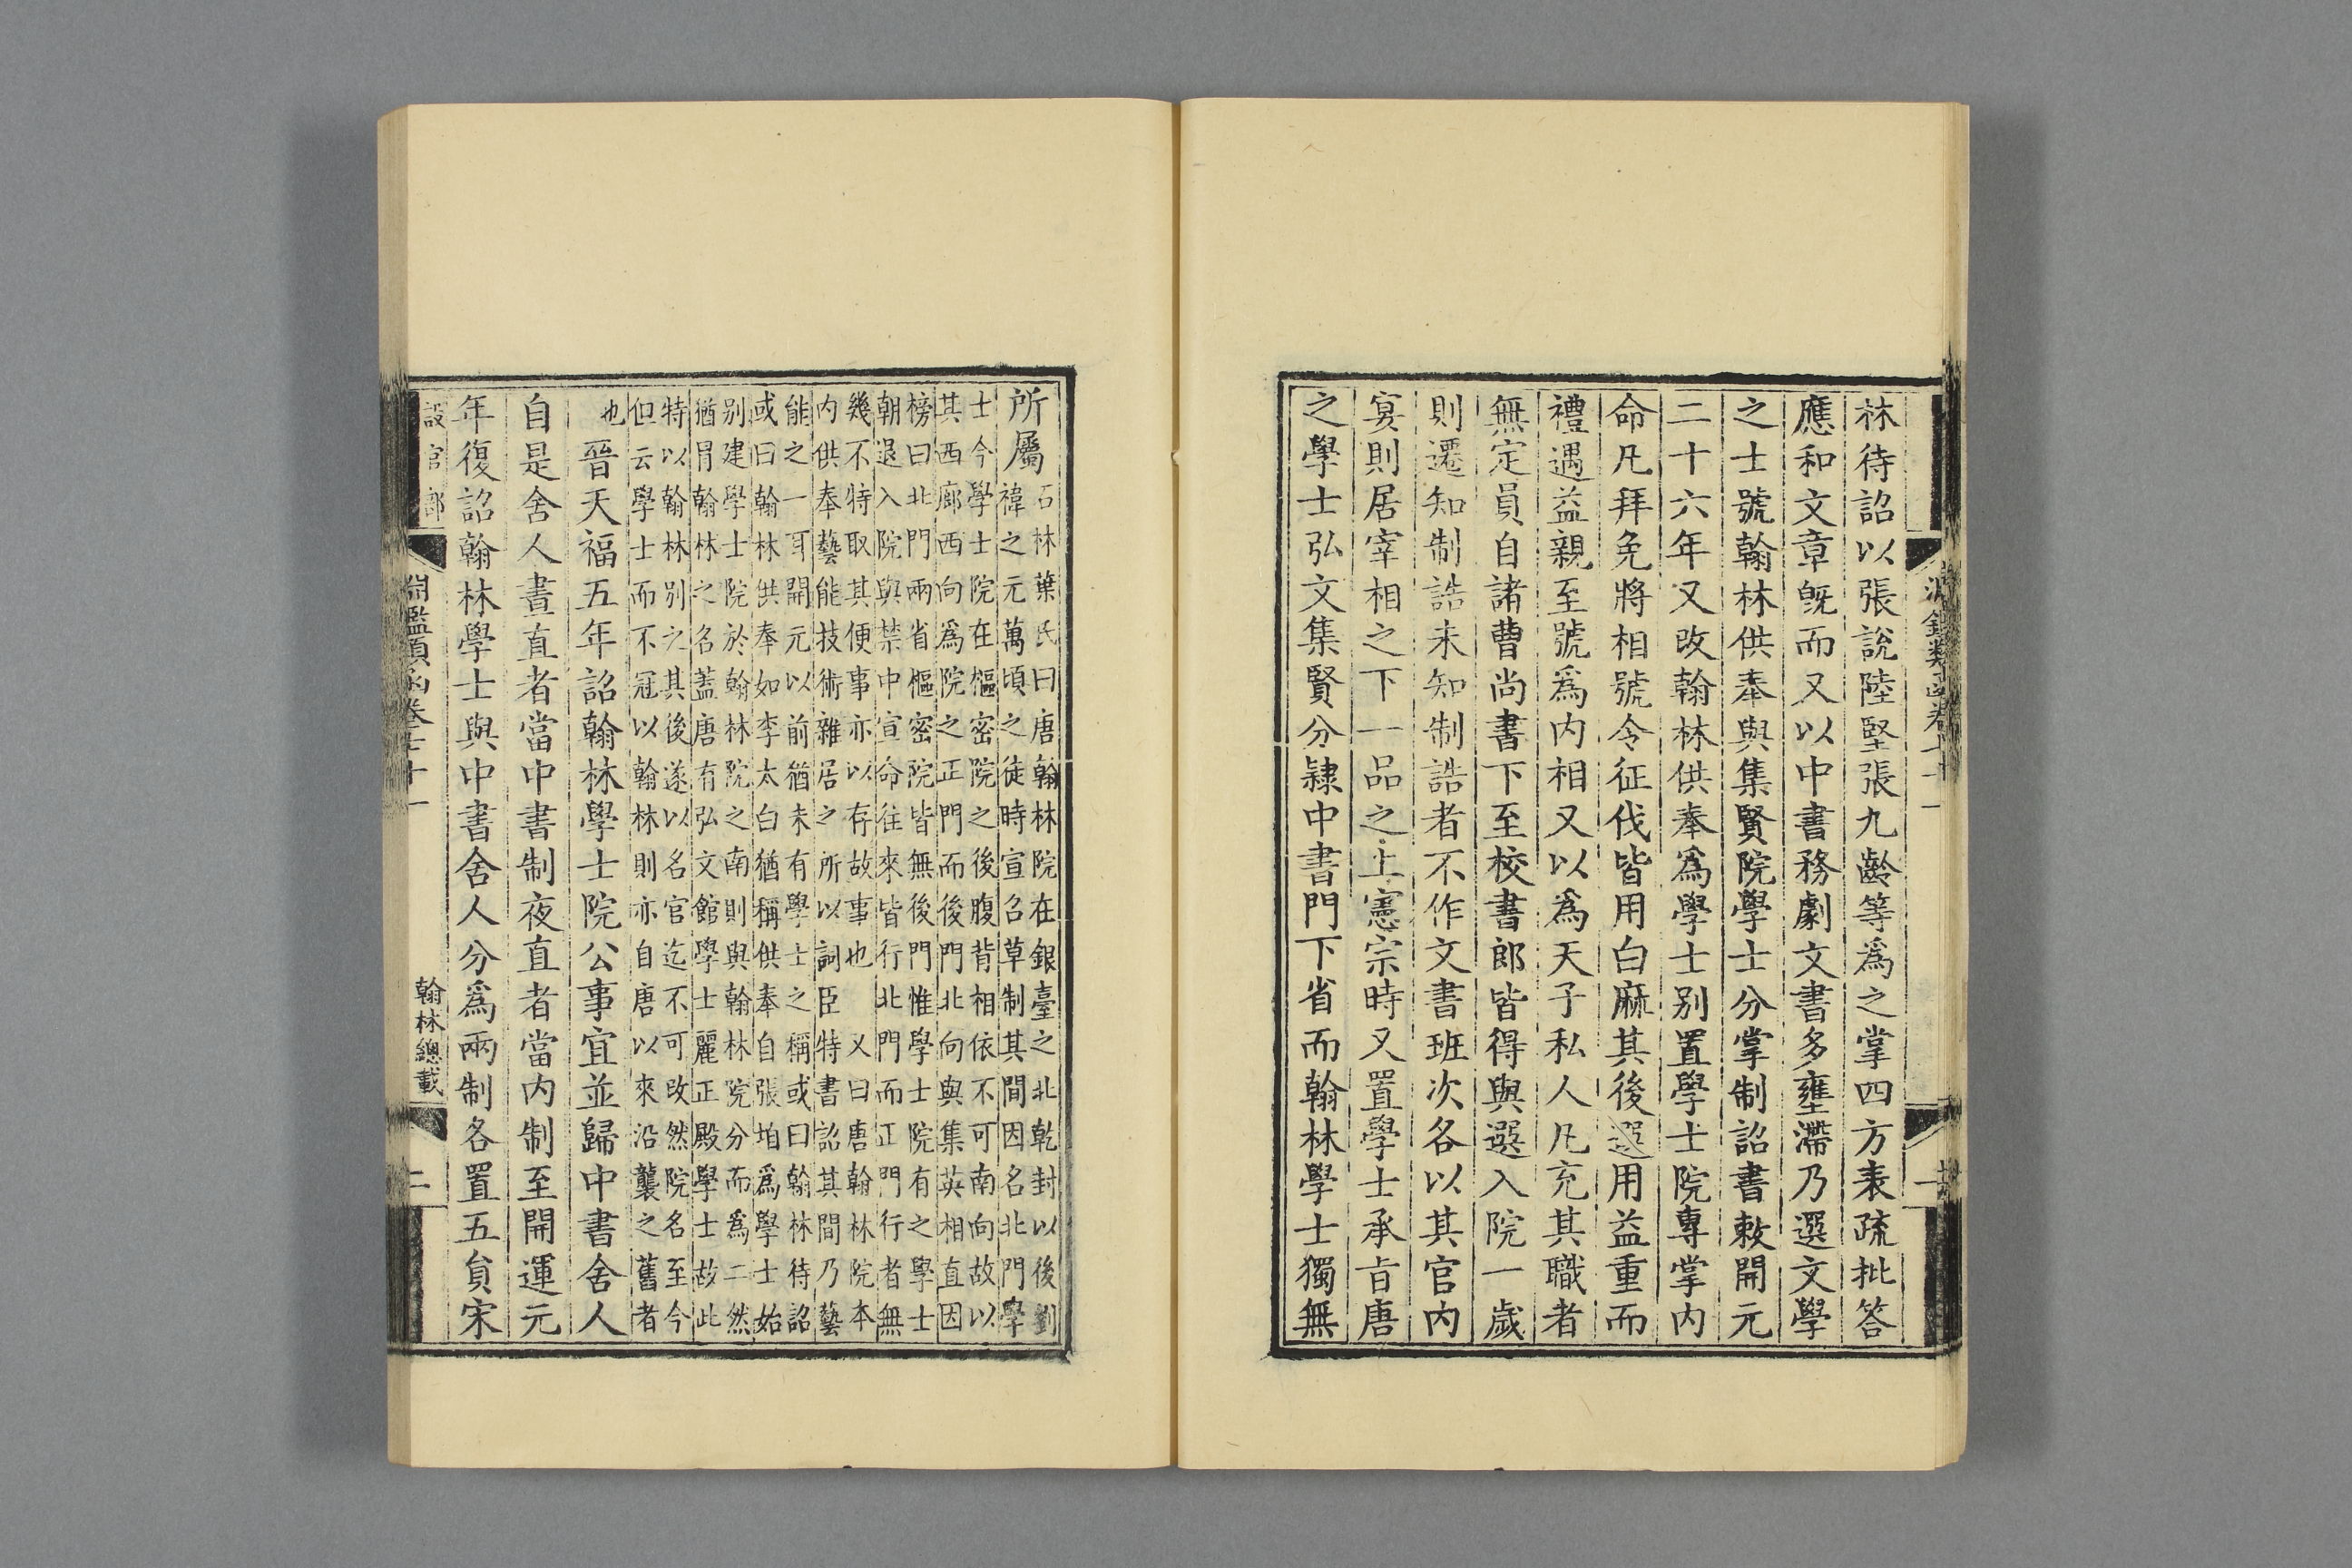 林待詔以張說陸堅張九齡等爲之掌四方表疏批答
應和文章旣而又以中書務劇文書多壅滯乃選文學
之士號翰林供奉與集賢院學士分掌制詔書敕開元
二十六年又改翰林供奉爲學士别置學士院專掌内
命凡拜免將相號令征伐皆用白麻其後選用益重而
禮遇益親至號爲内相又以爲天子私人凡充其職者
無定員自諸曹尚書下至校書郎皆得與選入院一歲
則遷知制誥未知制誥者不作文書班次各以其官内
宴則居宰相之下一品之上憲宗時又置學士承旨唐
之學士弘文集賢分隷中書門下省而翰林學士獨無
所屬
石林葉氏曰唐翰林院在銀臺之北乾封以後劉
禕之元萬頃之徒時宣召草制其間因名北門學
士今學士院在樞密院之後腹背相依不可南向故以
其西廊西向爲院之正門而後門北向與集英相直因
榜曰北門兩省樞密院皆無後門惟學士院有之學士
朝退入院與禁中宣命往來皆行北門而正門行者無
幾不特取其便事亦以存故事也 又曰唐翰林院本
内供奉藝能技術雜居之所以詞臣特書詔其間乃藝
能之一耳開元以前猶未有學士之稱或曰翰林待詔
或曰翰林供奉如李太白猶稱供奉自張垍爲學士始
别建學士院於翰林院之南則與翰林院分而爲二然
猶冒翰林之名蓋唐有弘文館學士麗正殿學士故此
特以翰林别之其後遂以名官迄不可改然院名至今
但云學士而不冠以翰林則亦自唐以來沿襲之舊者
也
晉天福五年詔翰林學士院公事宜並歸中書舍人
自是舍人晝直者當中書制夜直者當内制至開運元
年復詔翰林學士與中書舍人分爲兩制各置五員宋
設官部
淵鑑類函卷七十一
翰林總載
二